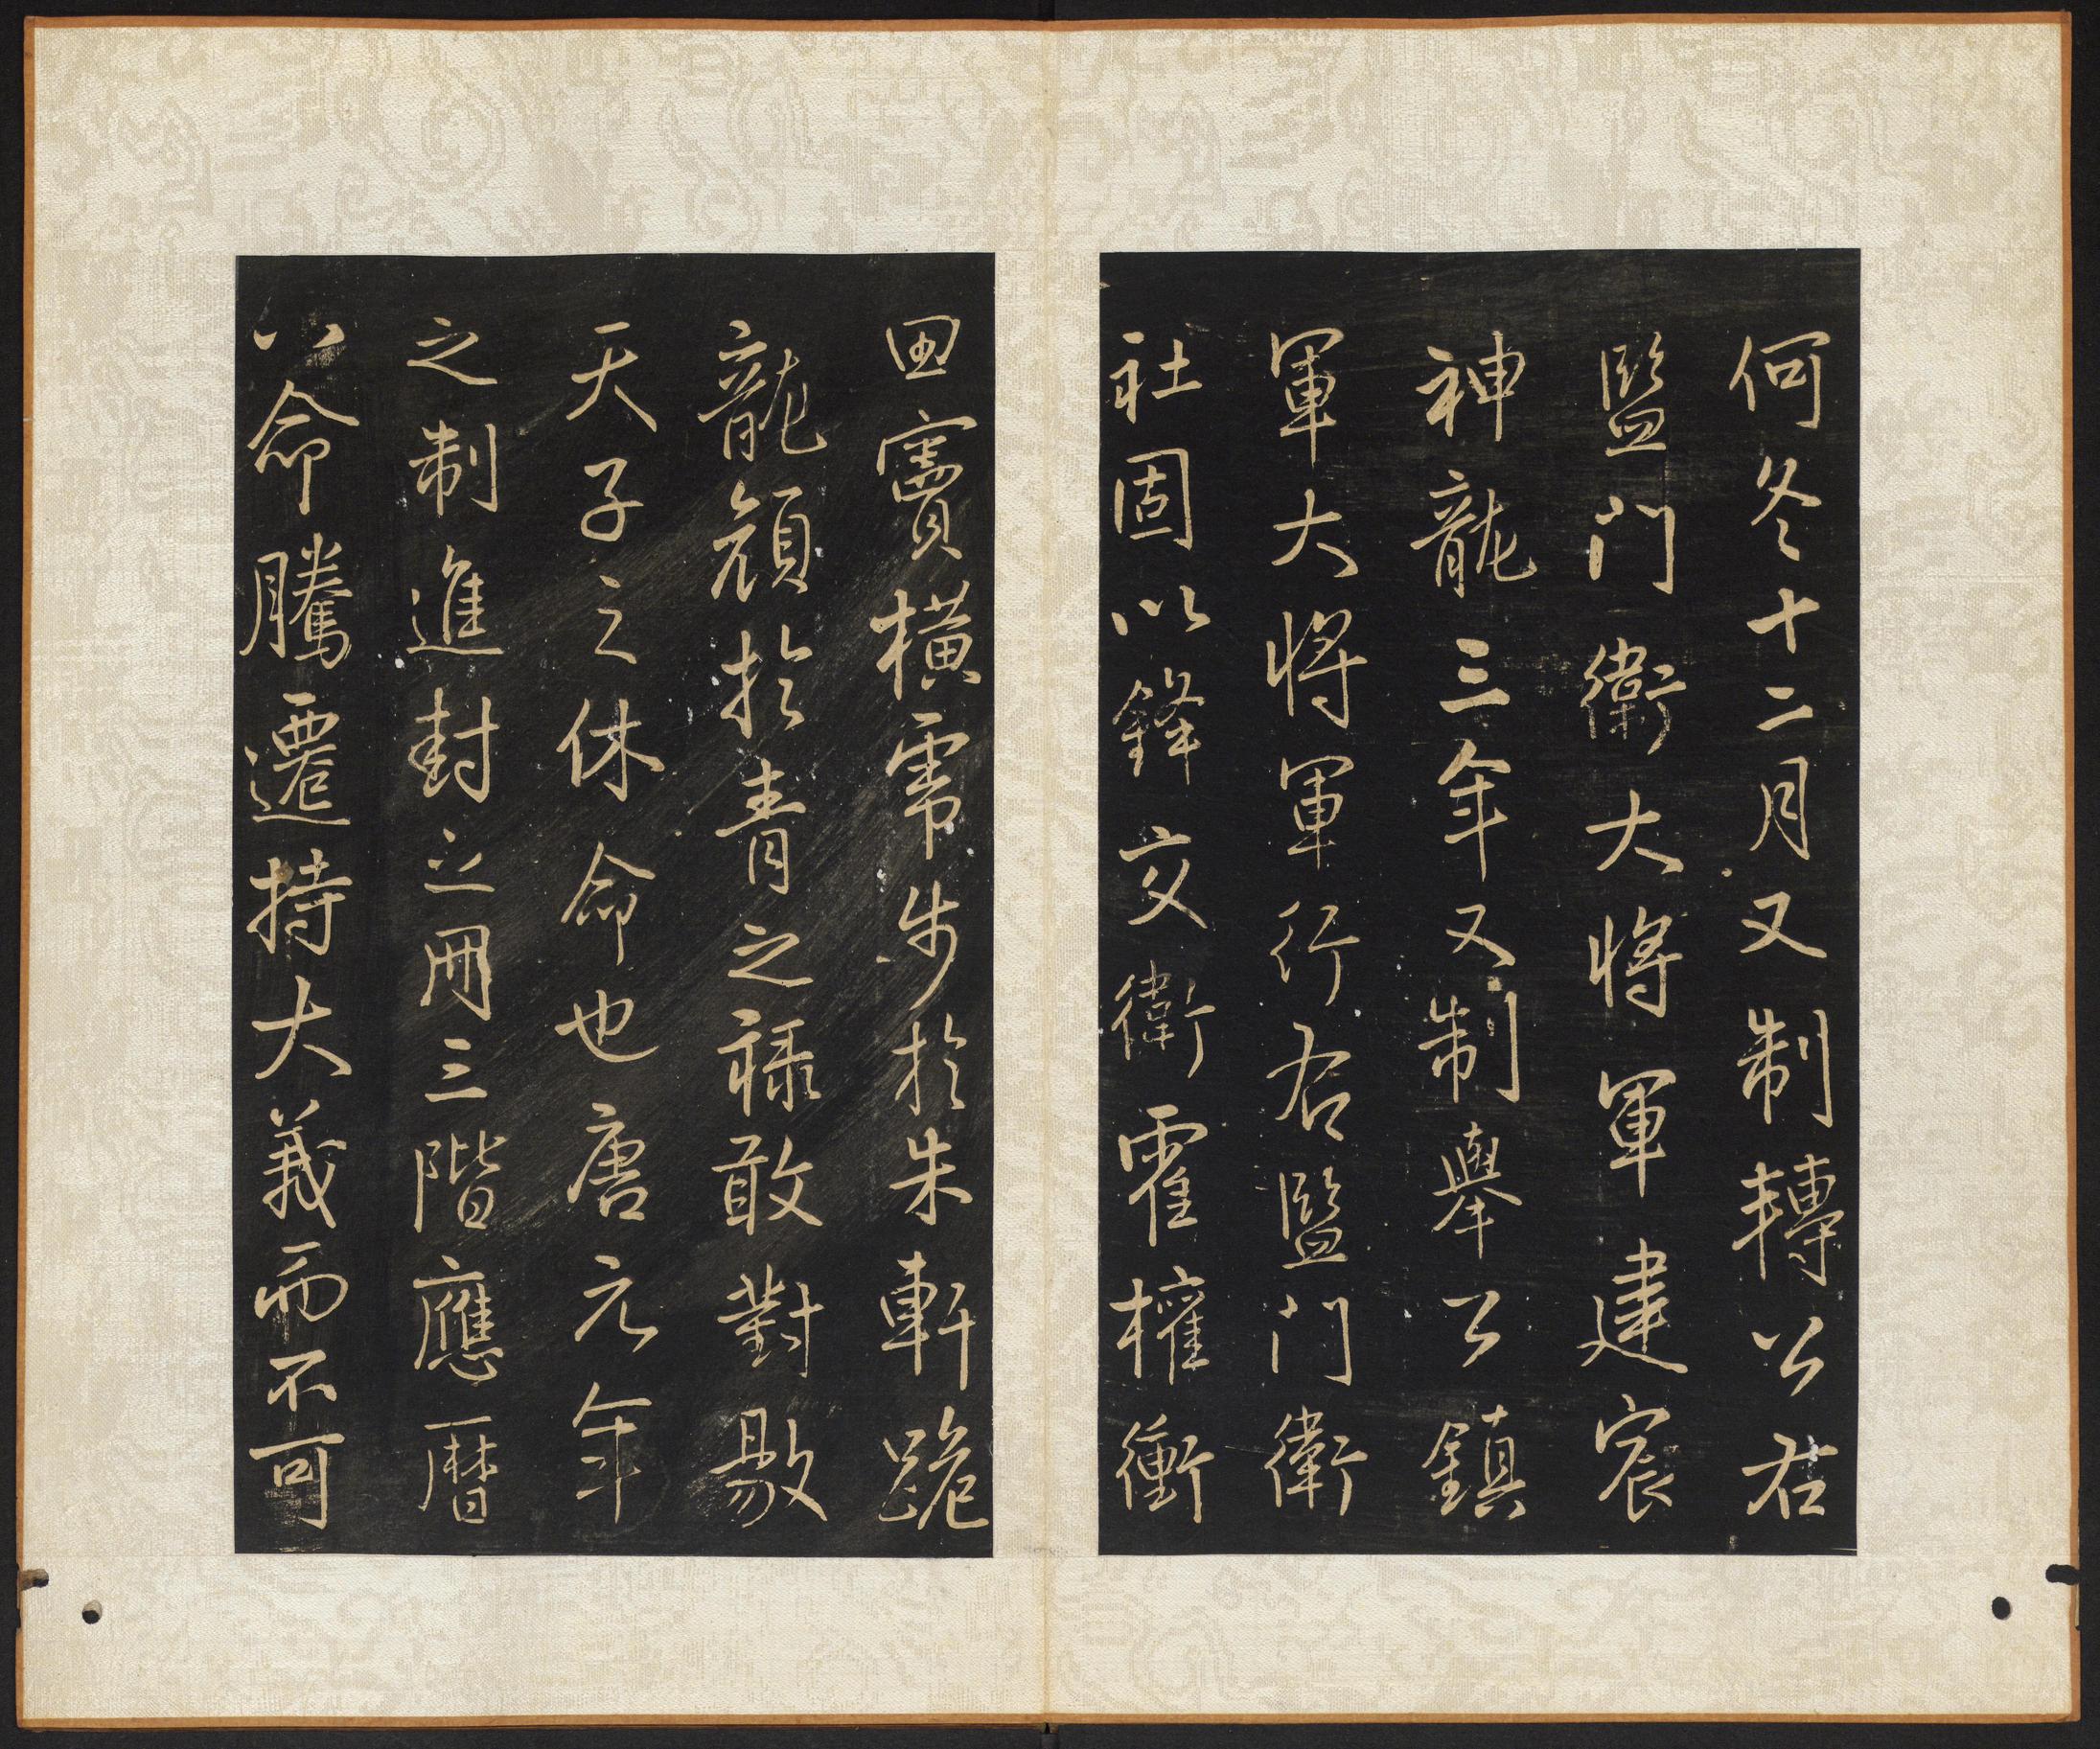 何冬十二月又制轉公右
監門衛大將軍建宸
神龍三年又制舉公鎮
軍大將軍行右監門衛
社固以鋒交衛霍權衡
田竇橫霈步於朱軒跪
龍顏於青之祿敢對敭
天子之休命也唐元年
之制進封之冊三階應曆
以命騰遷持大義而不可